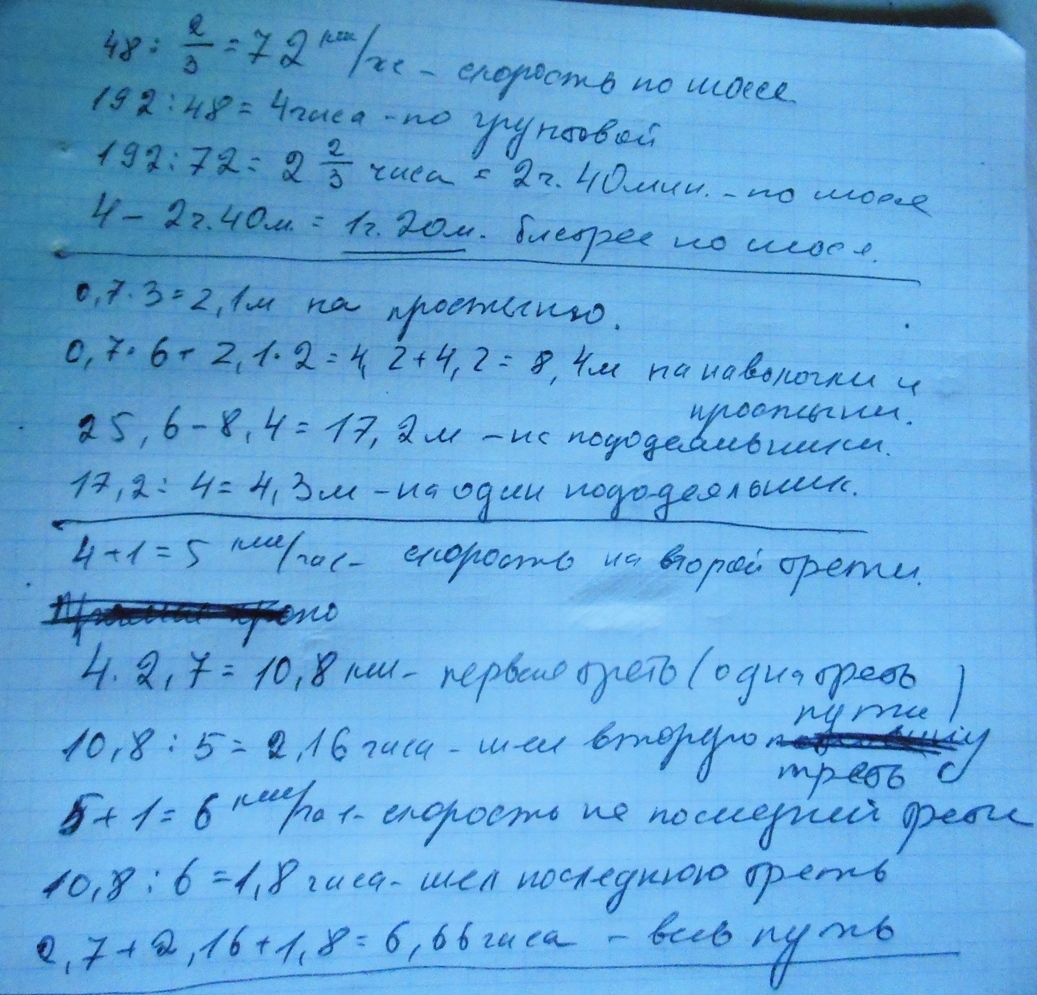 48 : 2/3 = 72 км/час - скорость по шоссе
192 : 48 = 4 часа - по грунтовой
192 : 72 = 2 2/3 часа = 2ч. 40мин. - по шоссе
4 - 2ч. 40м. = 1ч. 20м. быстрее по шоссе.
0,7 · 3 = 2,1м на простыню.
0,7 · 6 + 2,1 · 2 = 4,2 + 4,2 = 8,4м на наволочки и
простыни.
25,6 - 8,4 = 17,2м - на пододеяльники.
17,2 : 4 = 4,3м - на один пододеяльник.
4 + 1 = 5 км/час - скорость на второй трети.
4 · 2,7 = 10,8 км - первая треть (одна треть
пути)
10,8 : 5 = 2,16 часа - шел вторую
треть
5 + 1 = 6 км/час - скорость на последней трети
10,8 : 6 = 1,8 часа - шел последнюю треть
2,7 + 2,16 + 1,8 = 6,66 часа - весь путь